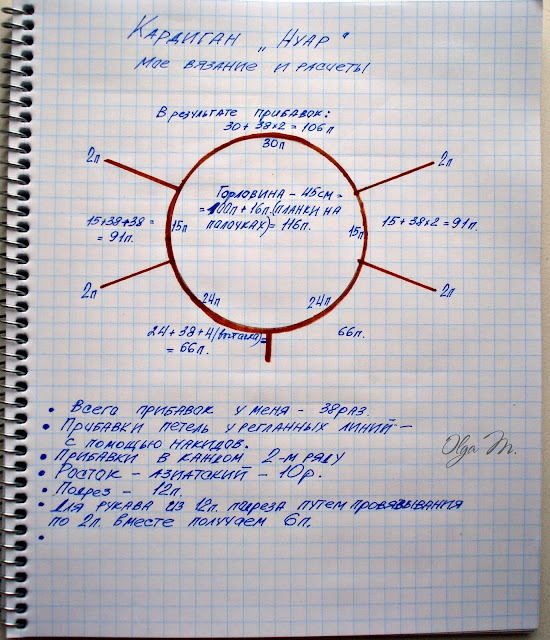 Кардиган „Нуар"
мое вязание и расчеты
В результате прибавок:
30 + 38×2 = 106п
30п
2п
2п
Горловина – 45см =
= 100п + 16п.(планки на
палочках) = 116п.
15+38+38 =
= 91п.
15п
15п
15 + 38×2 = 91п.
2п
2п
24п
24п
24 + 38 + 4
= 66п.
66п.
• Всего прибавок у меня – 38 раз.
• Прибавки петель у регланных линий –
с помощью накидов.
• Прибавки в каждом 2-м ряду
• Росток – азиатский – 10р.
• Подрез – 12п.
• Для рукава из 12п. подреза путем провязывания
по 2п. вместе получаем 6п.
•
Olga M.